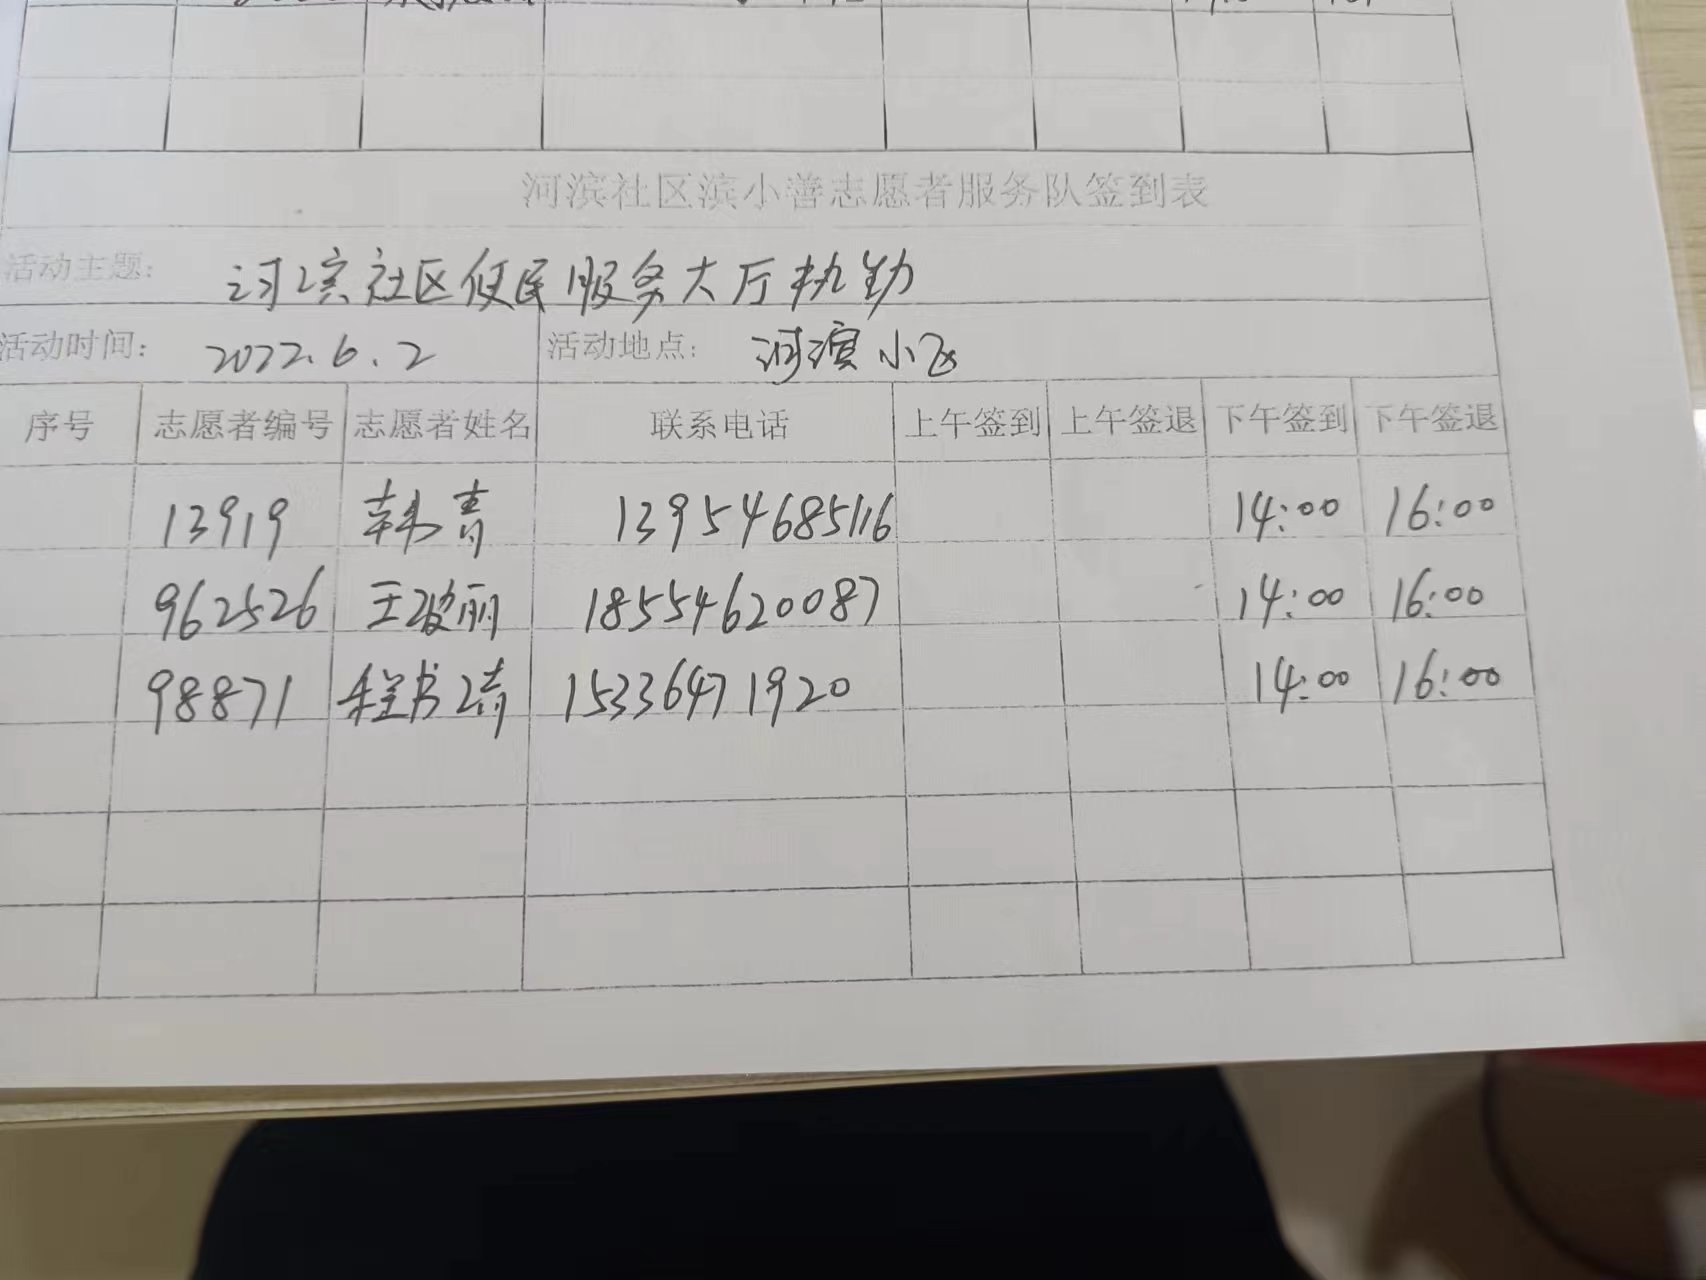 河滨社区滨小善志愿者服务队签到表
活动主题： 河滨社区便民服务大厅执勤
活动时间： 2022.6.2 活动地点： 河滨小区
序号 志愿者编号 志愿者姓名 联系电话 上午签到 上午签退 下午签到 下午签退
13919 韩青 13954685116 14:00 16:00
962526 王改丽 18554620087 14:00 16:00
98871 程书靖 15336471920 14:00 16:00